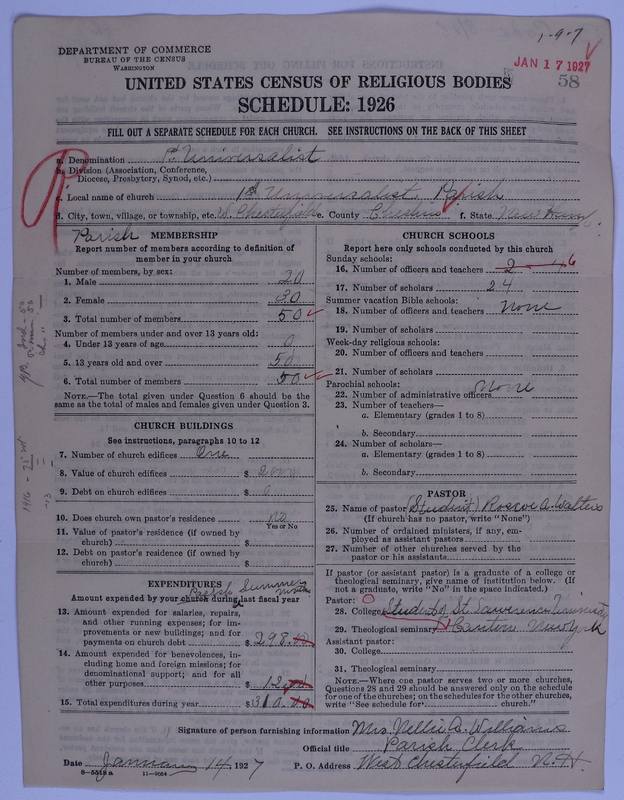 1-9-7
DEPARTMENT OF COMMERCE
BUREAU OF THE CENSUS
WASHINGTON
JAN 17 1927
58
UNITED STATES CENSUS OF RELIGIOUS BODIES
SCHEDULE: 1926
FILL OUT A SEPARATE SCHEDULE FOR EACH CHURCH. SEE INSTRUCTIONS ON THE BACK OF THIS SHEET
a. Denomination Universalist
b. Division (Association, Conference,
Diocese, Presbytery, Synod, etc.)
c. Local name of church 1st Universalist Parish
d. City, town, village, or township, etc. W. Chesterfield e. County Cheshire f. State New Hamp.
Parish MEMBERSHIP
Report number of members according to definition of
member in your church
Number of members, by sex:
1. Male 20
2. Female 30
3. Total number of members 50
Number of members under and over 13 years old:
4. Under 13 years of age 0
5. 13 years old and over 50
6. Total number of members 50
NOTE.—The total given under Question 6 should be
same as the total of males and females given under Question 3.
CHURCH BUILDINGS
See instructions, paragraphs 10 to 12
7. Number of church edifices One
8. Value of church edifices $ 2000
9. Debt on church edifices $ 0
10. Does church own pastor's residence no
Yes or No
11. Value of pastor's residence (if owned by
church) $
12. Debt on pastor's residence (if owned by
church) $
EXPENDITURES
Parish Summer
Amount expended by your church during last fiscal year
13. Amount expended for salaries, repairs,
and other running expenses; for im-
provements or new buildings; and for
payments on church debt $ 298.
14. Amount expended for benevolences, in-
cluding home and foreign missions; for
denominational support; and for all
other purposes $ 12
15. Total expenditures during year $ 310.
CHURCH SCHOOLS
Report here only schools conducted by this church
Sunday schools:
16. Number of officers and teachers 2
17. Number of scholars 24
Summer vacation Bible schools:
18. Number of officers and teachers none
19. Number of scholars
Week-day religious schools:
20. Number of officers and teachers
21. Number of scholars
Parochial schools:
22. Number of administrative officers none
23. Number of teachers—
a. Elementary (grades 1 to 8)
b. Secondary
24. Number of scholars—
a. Elementary (grades 1 to 8)
b. Secondary
PASTOR
25. Name of pastor (Student) Roscoe A. Walters
(If church has no pastor, write "None")
26. Number of ordained ministers, if any, em-
ployed as assistant pastors
27. Number of other churches served by the
pastor or his assistants
If pastor (or assistant pastor) is a graduate of a college or
theological seminary, give name of institution below. (If
not a graduate, write "No" in the space indicated.)
Pastor:
28. College Student of St. Lawrence University
29. Theological seminary Canton New York
Assistant pastor:
30. College
31. Theological seminary
NOTE.—Where one pastor serves two or more churches,
Questions 28 and 29 should be answered only on the schedule
for one of the churches; on the schedules for the other churches,
write "See schedule for church."
Signature of person furnishing information Mrs. Nellie A. Williams
Official title Parish Clerk
Date January 14, 1927 P. O. Address West Chesterfield N.H.
8-5518 a 11-9084